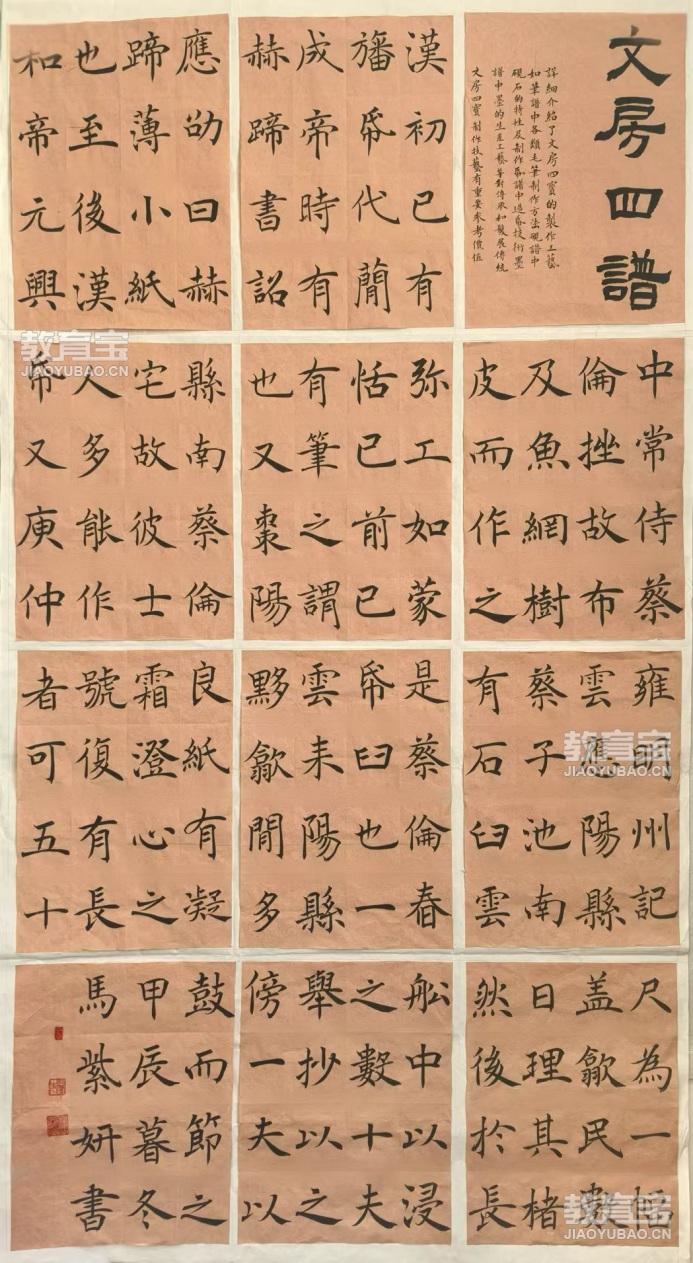 文房四譜
詳細介紹了文房四寳的製作工藝
如筆譜中各類毛筆制作方法硯譜中
硯石的特性及制作帋譜中造帋技術墨
譜中墨的生産工藝等對傳承和發展傳統
文房四寳制作技藝有重要参考價值
漢初已有
旛帋代簡
成帝時有
赫蹄書詔
應劭曰赫
蹄薄小紙
也至後漢
和帝元興
中常侍蔡
倫挫故布
及魚網樹
皮而作之
弥工如蒙
恬已前已
有筆之謂
也又棗陽
縣南蔡倫
宅故彼士
人多能作
帋又庚仲
雍明州記
雲應陽縣
蔡子池南
有石臼雲
是蔡倫舂
帋臼也一
雲耒陽縣
黟歙閒多
良紙有凝
霜澄心之
號復有長
者可五十
尺為一幅
盖歙民數
日理其楮
然後於長
舩中以浸
之數十夫
舉抄以之
傍一夫以
鼓而節之
甲辰暮冬
馬紫妍書
教育宝
JIAOYUBAO.CN
教育宝
JIAOYUBAO.CN
教育宝
JIAOYUBAO.CN